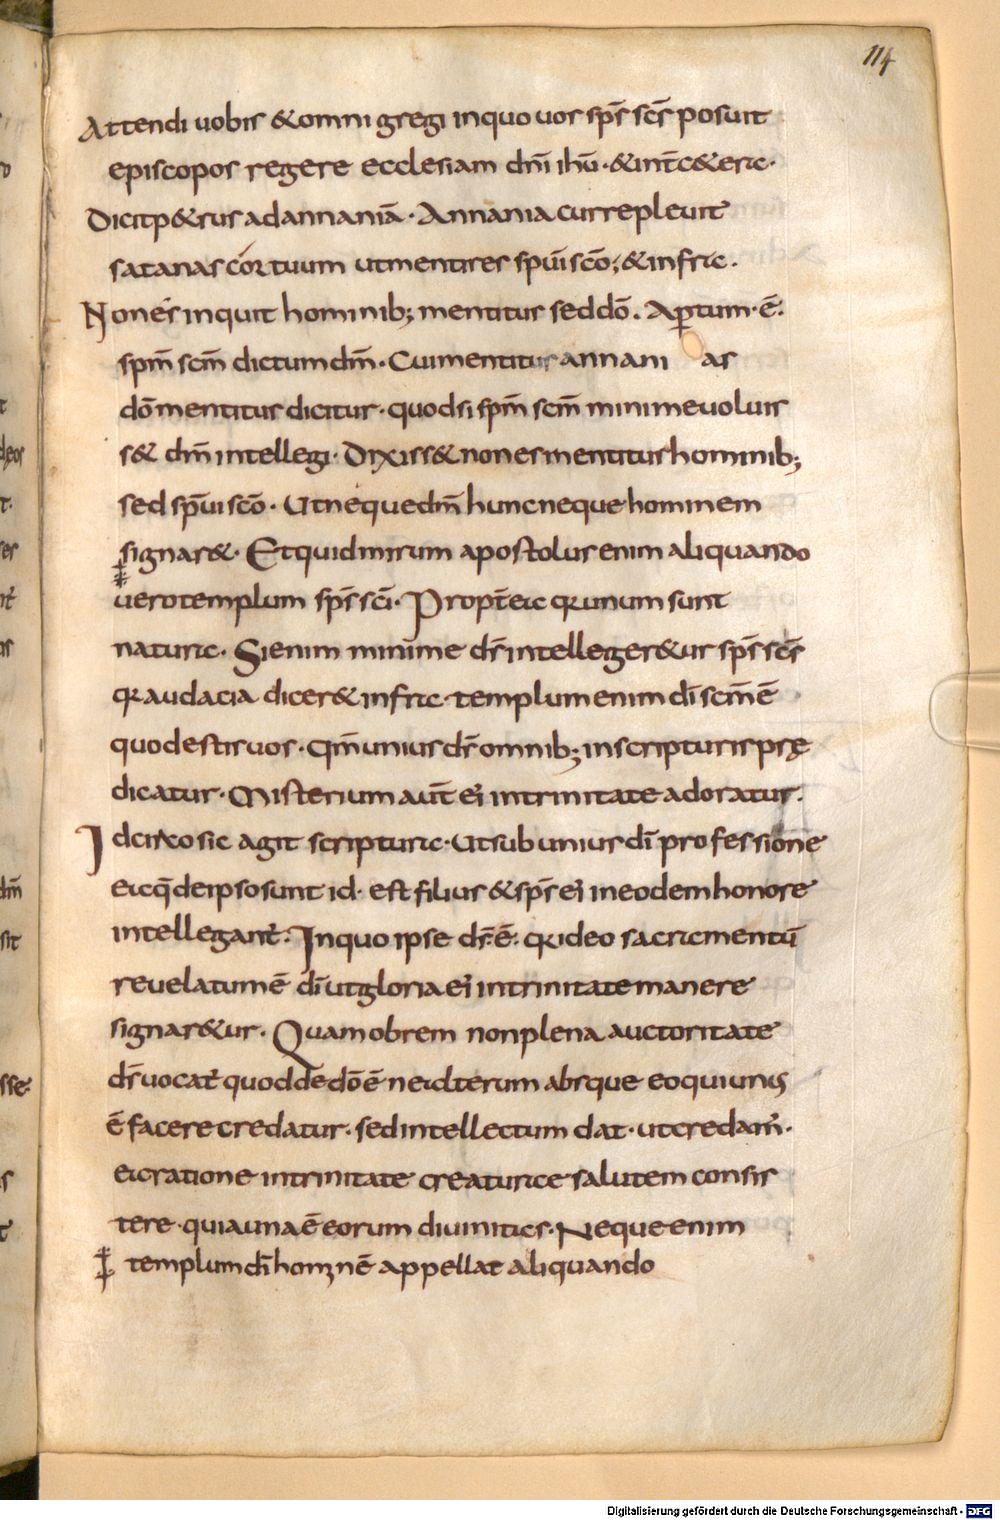 114
Attendi uobis &omni gregi inquo uos sps̄ scs̄ posuit
episcopos regere ecclesiam dn̄i ihū · &int̄c&eric·
Dicitp&rus adannaniā · Annania cur repleuit
satanas cor tuum utmentires spūi scō; &infric.
Nonés inquit hominib; mentitus seddō. Aꝑtum·ē·
spm̄ scm̄ dictum dm̄· Cuimentitur annani as
dō mentitus dicitur· quodsi spm̄ scm̄ minimeuoluis
s& dm̄ intellegi· Dixiss& nonesmentitus hominib;
sed spūi scō· Utnequedm̄ huncneque hominem
signar&· Etquidmirum apostolus enim aliquando
uerotemplum sps̄ sci· Propt̄eic qrunum sunt
naturic· Sienim minime ds̄ intelleger&ur sps̄ scs̄
qr audacia dicer& infric· templum enim dī scm̄ ē
quodestisuos· qm̄ unius ds̄ omnib; inscripturis prę
dicatur· Misterium aut̄ eī intrinitate adoratur·
Idcirco sic agit scripturic· Utsub unius dī professione
eicq̄ deipso sunt id· est filius & sps̄ eī ineodem honore
intellegant̄· Inquo ipse ds̄·ē· qrideo sacricmentū
reuelatum ē dī utgloria eī intrinitate manere
signar&ur· Quam obrem non plena auctoritate
ds̄ uocat̄ quoddedō ē neicdterum absque eo quiunus
ē facere credatur· sed intellectum dat· utcredam̄·
eicratione intrinitate creaturice salutem consis
tere· quiauna ē eorum diuiniticr· Neque enim
templum dī hominē appellat aliquando
Digitalisierung gefördert durch die Deutsche Forschungsgemeinschaft - DFG